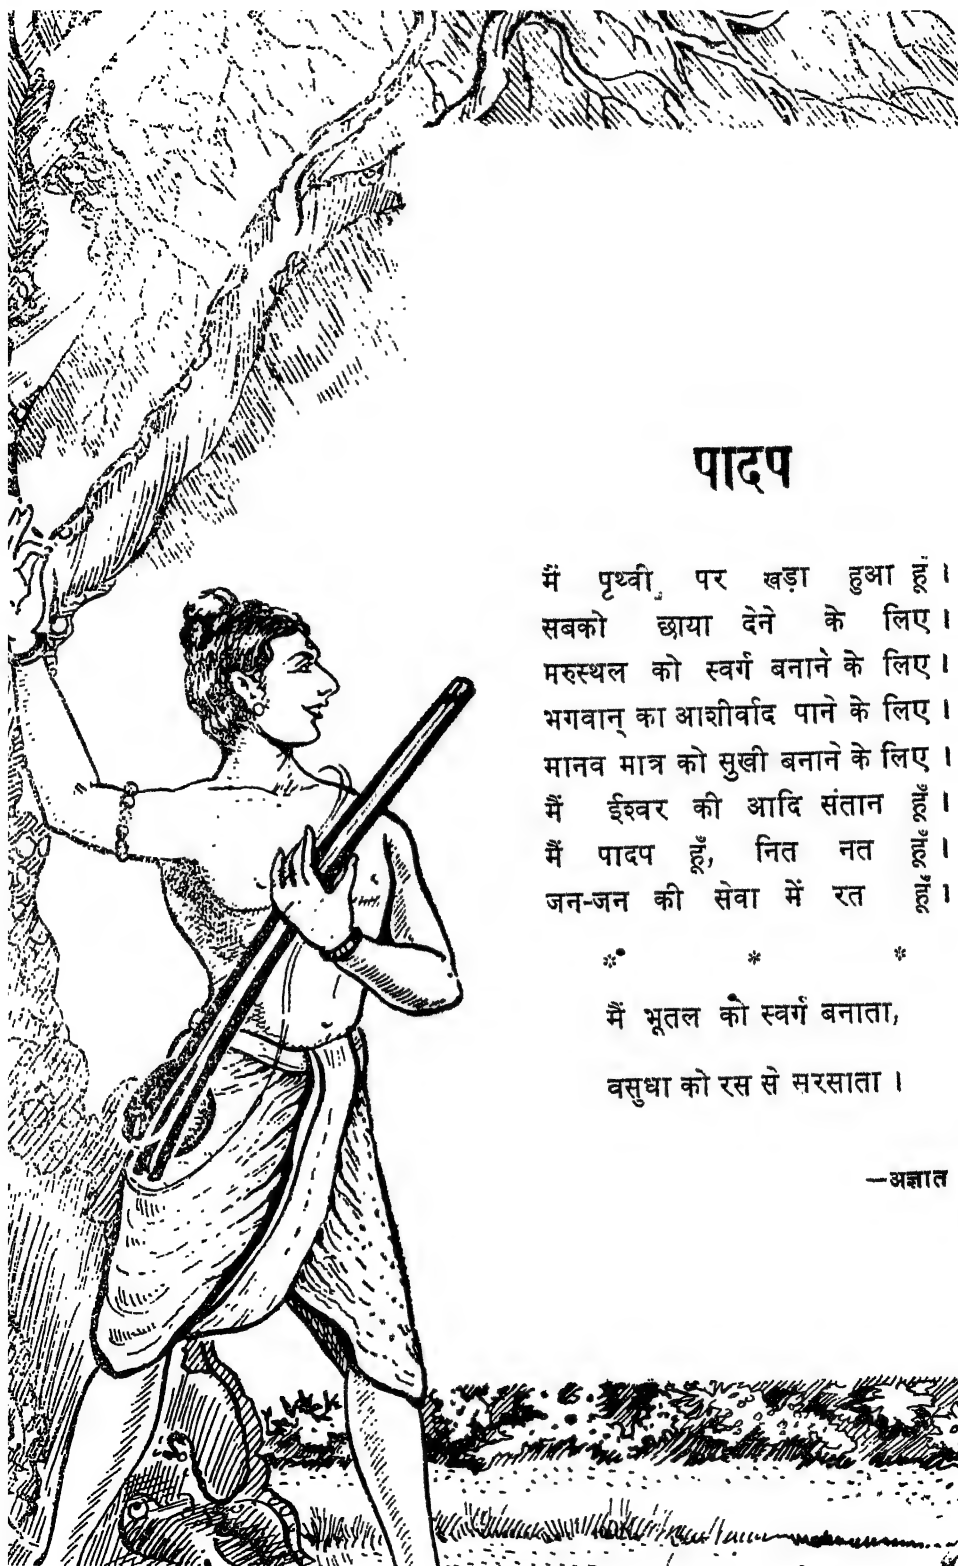 पादप
मैं पृथ्वी पर खड़ा हुआ हूँ ।
सबको छाया देने के लिए ।
मरुस्थल को स्वर्ग बनाने के लिए ।
भगवान् का आशीर्वाद पाने के लिए ।
मानव मात्र को सुखी बनाने के लिए ।
मैं ईश्वर की आदि संतान हूँ ।
मैं पादप हूँ, नित नत हूँ ।
जन-जन की सेवा में रत हूँ ।
* * *
मैं भूतल को स्वर्ग बनाता,
वसुधा को रस से सरसाता ।
—अज्ञात